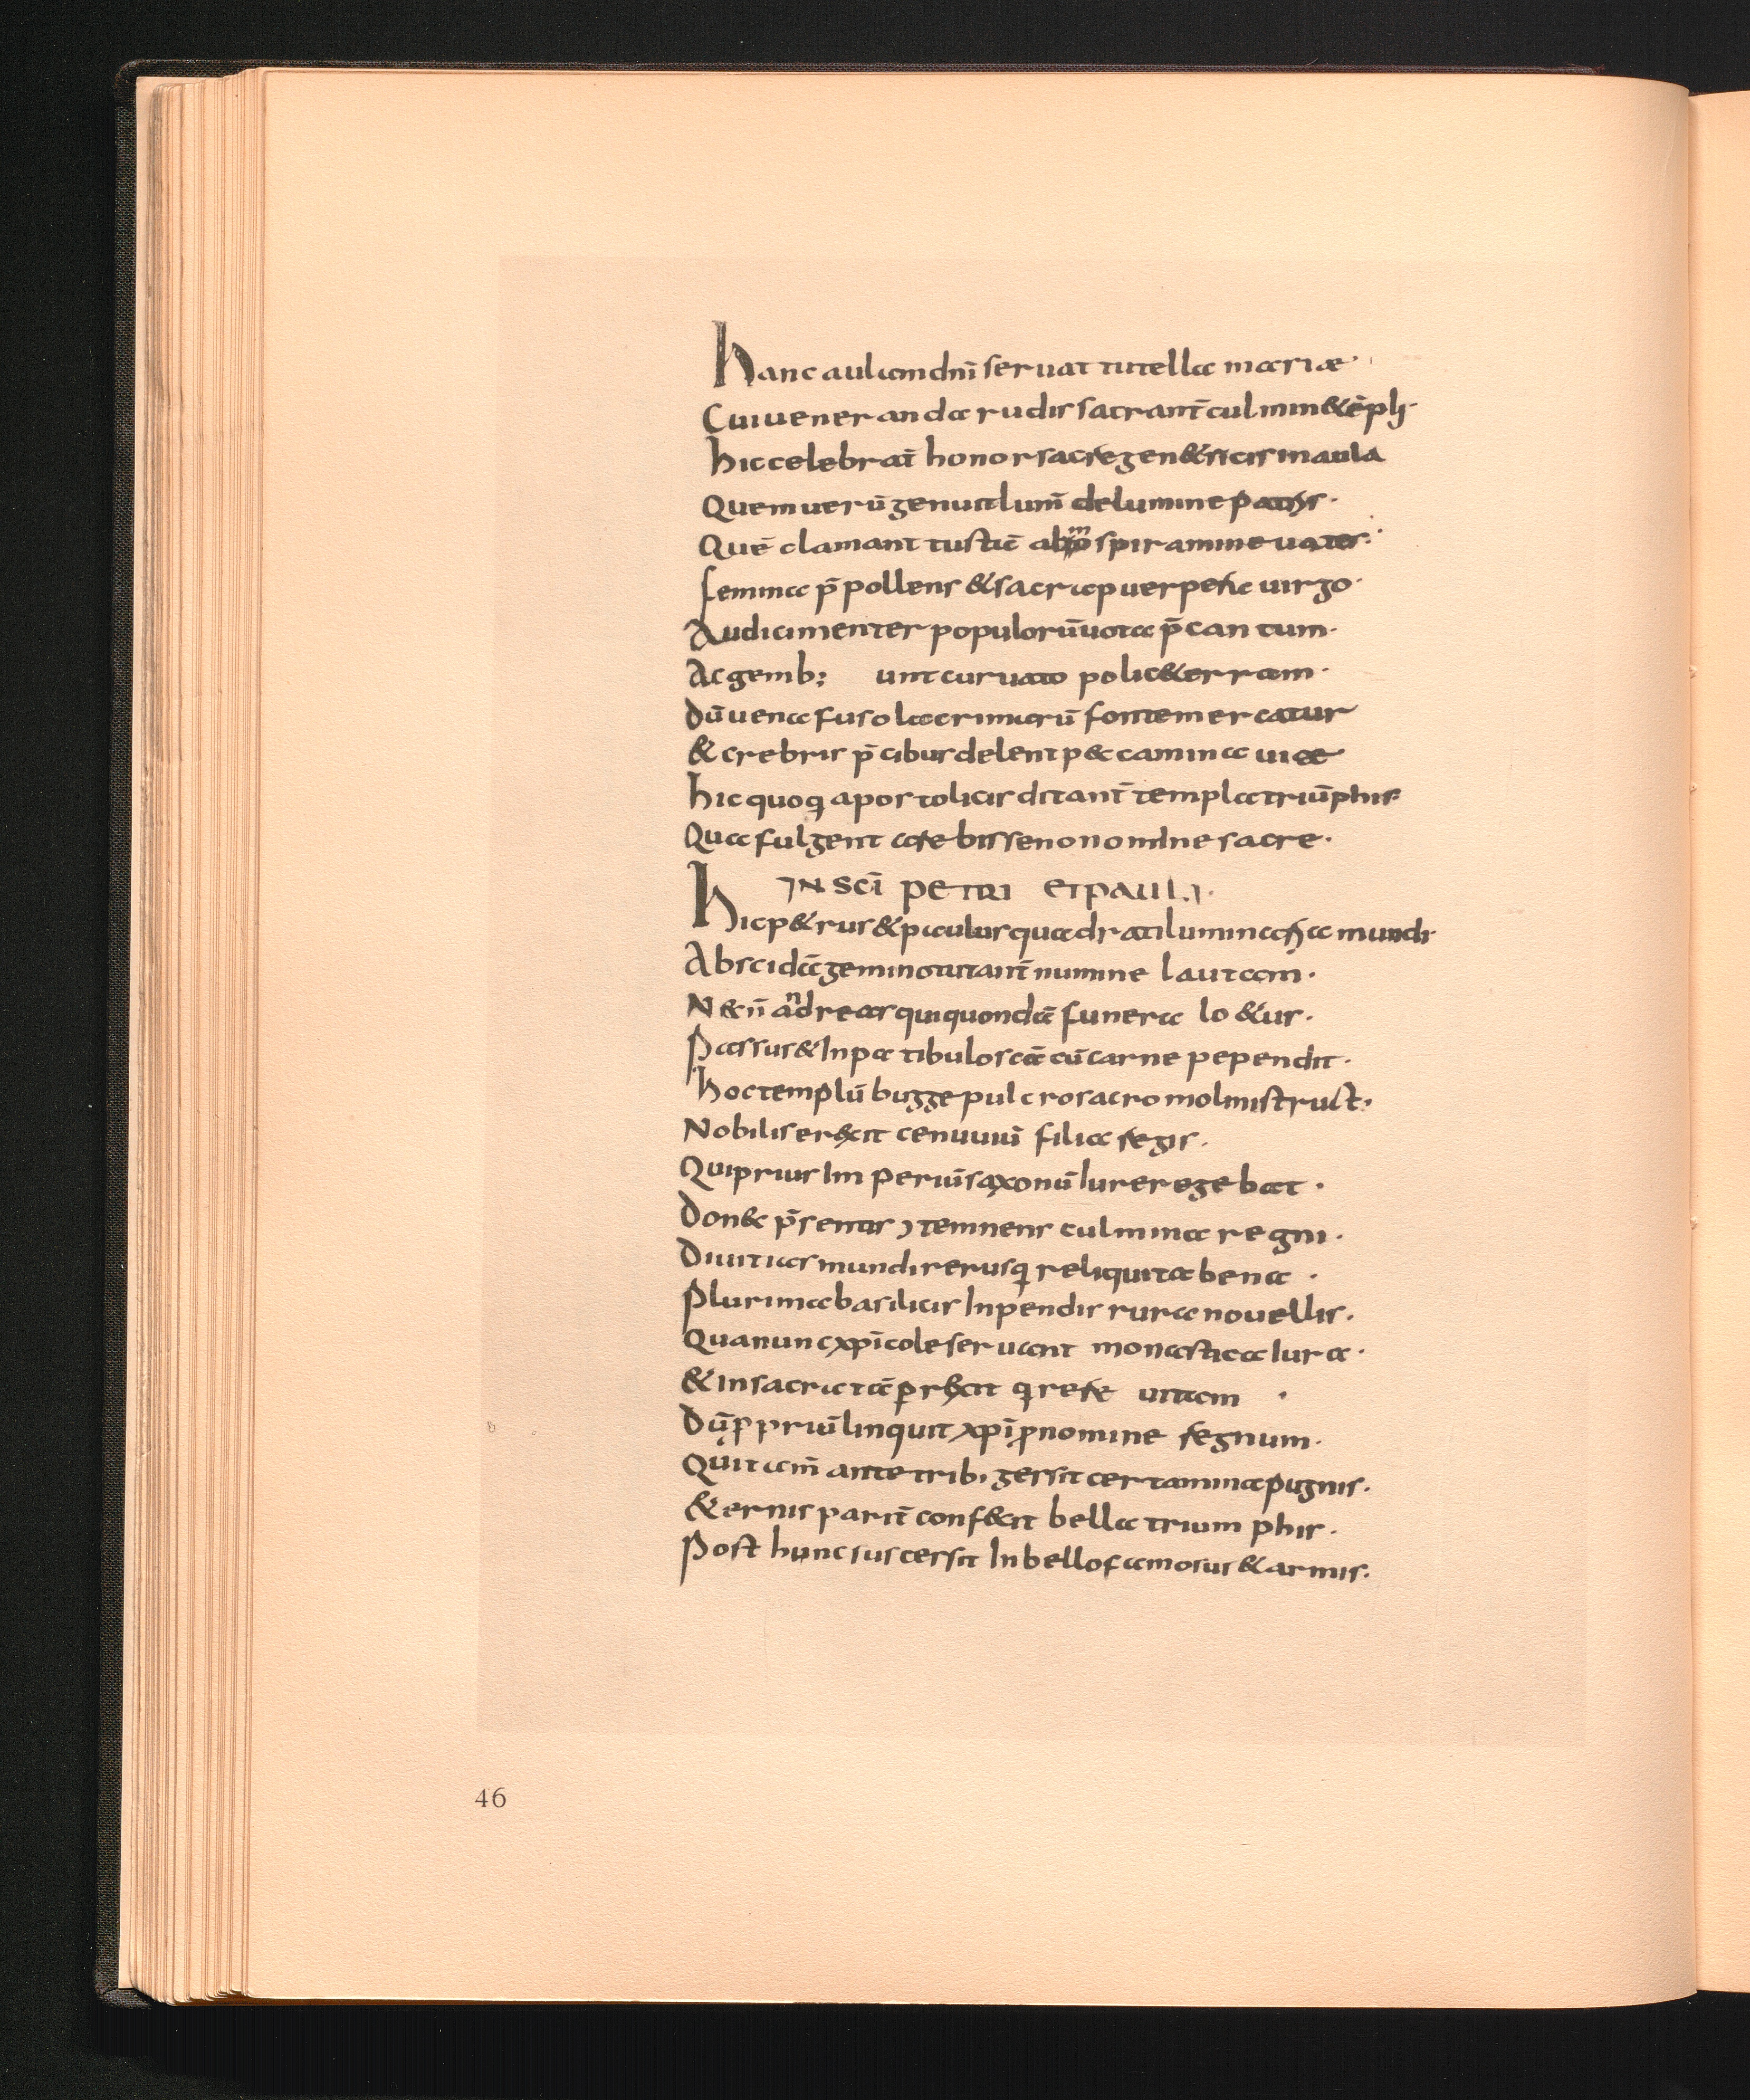 Hanc aulam dnī seruat tutella mariæ·
Cui ueneranda rudis sacrant̄ culmin& ēpli·
hic celebrat̄ honor sacre gen&ricis in aula
Quem uerū genuit lum̄ de lumine patris·
Quē clamant iustiē spiramine uates·
femina p̄pollens & sacra puerpera uirgo·
Audi clementer populorū uota p̄cantum·
Ac gemb; unt curuato polic& erram·
Dū uena fuso lacrimarū fonte mercatur
& crebris p̄cibus delent peccamina uitæ
hic quoq apostolicis ditant̄ templa triūphis
Qua fulgent arte bisseno nomine sacre·
IN SCĪ PETRI ET PAULI·
Hic p&rus & paulus quadrati lumina mundi·
Absidā gemino tutant̄ numine lautam·
N&ū andreas qui quondā funera lo&us·
Passus & In patibulo scā cū carne pependit·
hoc templū bugge pulcro sacro molmistruct·
Nobilis er&cit cenuuuī filia regis·
Qui prius Imperiū saxonū Iure regebat·
Donec p̄sentis ɔtemnens culmina regni·
Diuitias mundi rerusq reliquit abena·
Plurima basilicis Inpendis rura nouellis·
Qua nunc xp̄icole seruant monastica Iura·
& in sacrata prexit q rere uitam·
Dū prpriū linquit xpī p nomine regnum·
Qui tam̄ ante trib· gessit certamina pugnis·
&ernis parit̄ confecit bella trium phis·
Post hunc suscessit In bello famosus & armis·
46